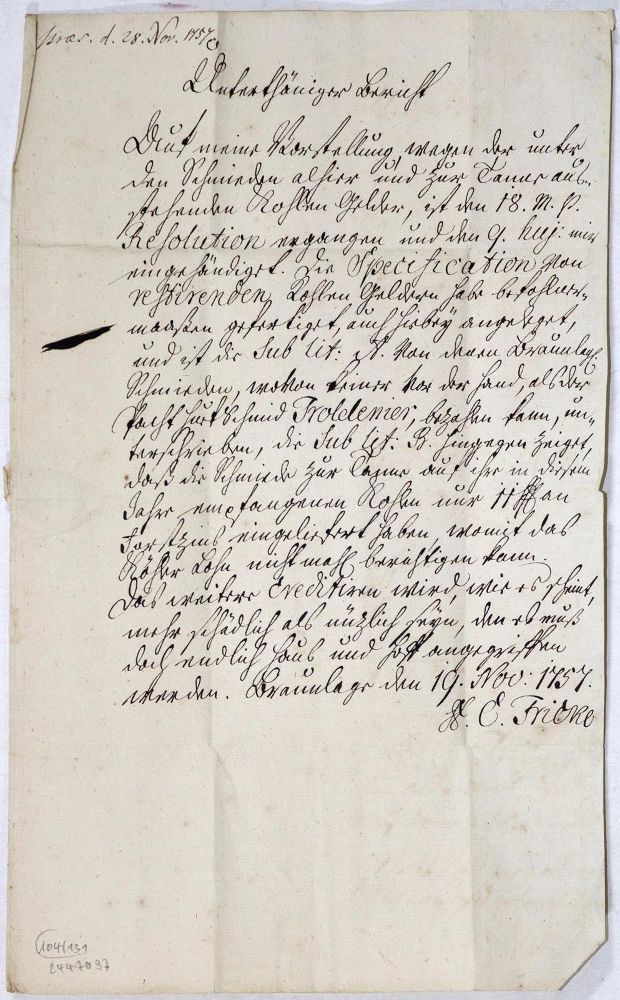 præs. d. 28. Nov. 1757
Unterthäniger Bericht
Auf meine Vorstellung, wegen der unter
den Schmieden alhier und zur Tanne aus-
stehenden Kohlen Gelder, ist den 18. M. p.
Resolution ergangen und den 9. huj: mir
eingehändiget. Die Specification von
restirenden Kohlen Geldern habe befohlner-
maaßen gefertiget, auch hiebey angeleget,
und ist die Sub lit: A. von denen Braunlag.
Schmieden, wovon keiner vor der Hand, als der
Pacht Schmid bezahlen kann, un-
terschrieben, die Sub lit: B. hingegen zeiget,
daß die Schmiede zur Tanne auf ihre in diesem
Jahre empfangenen Kohlen nur 11 an
Forstzins eingeliefert haben, womit das
Köhler Lohn nicht mahl berichtigen kann.
Das weitere Creditiren wird, wie es scheint,
mehr schädlich als nützlich seyn, den es muß
doch endlich Hauß und Hoff angegriffen
werden. Braunlage den 19. Nov: 1757.
E. Fricke
104/131
2447097